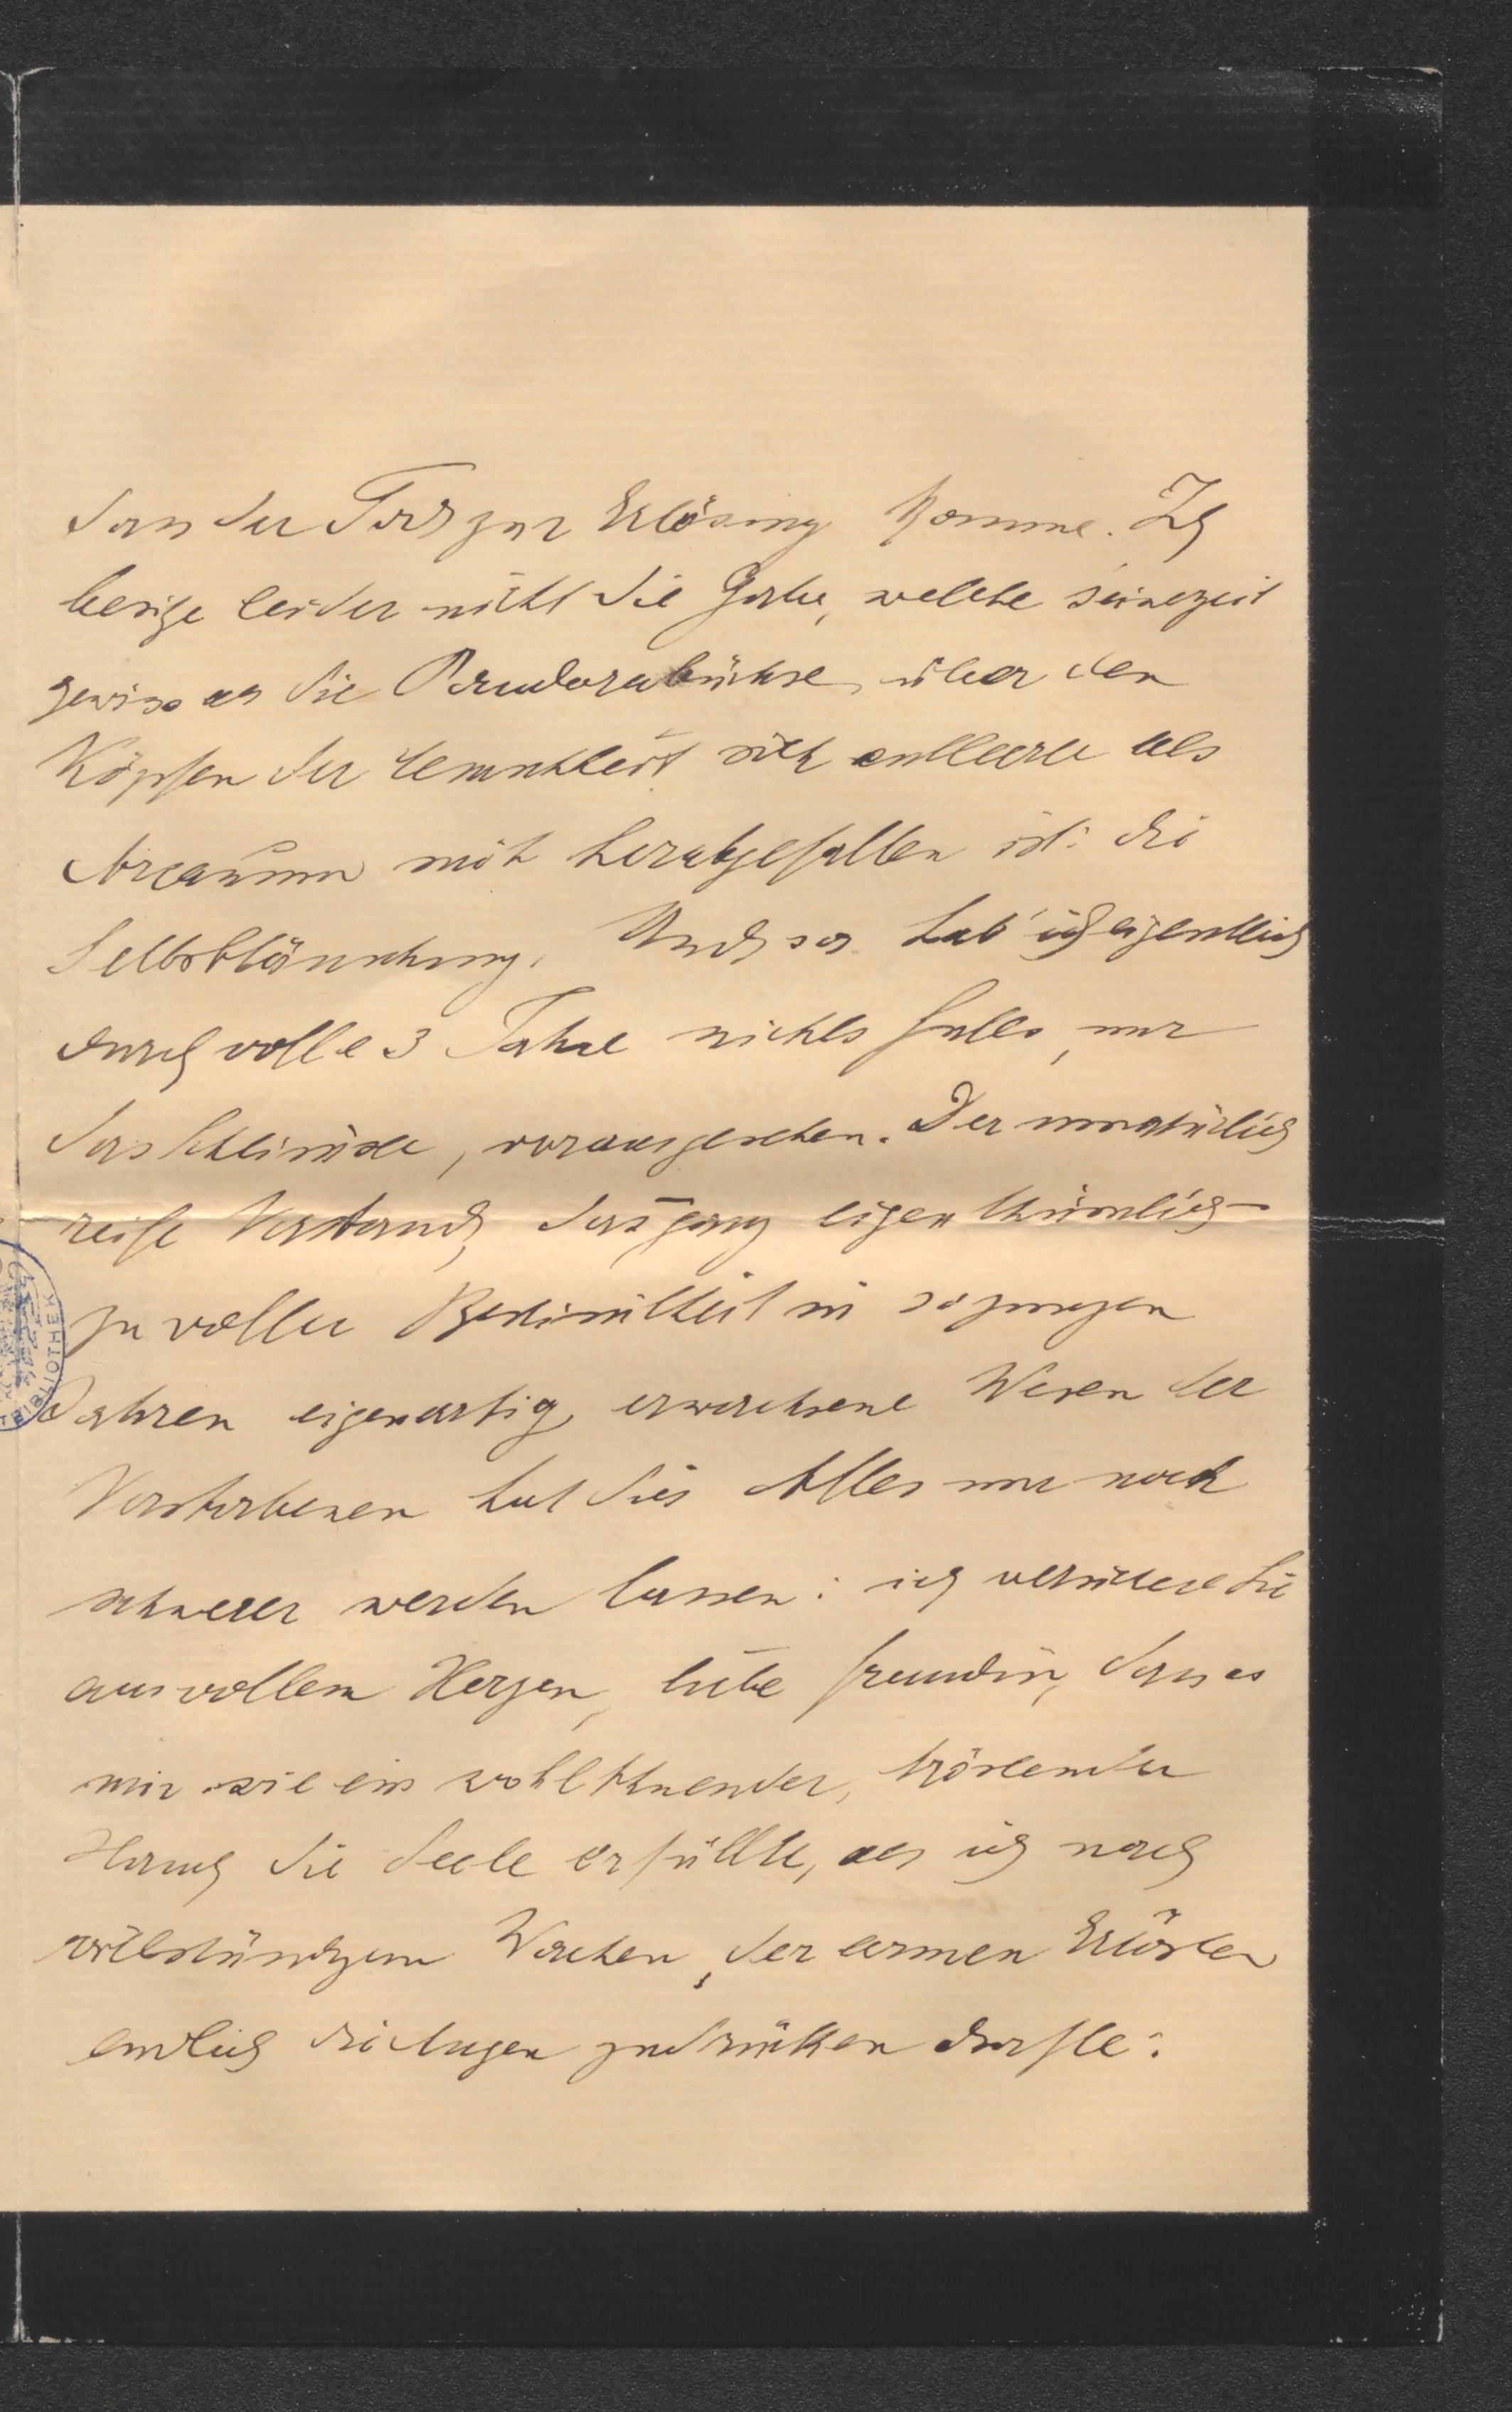 dass der Tod zur Erlösung komme. Ich
besitze leider nicht die Gabe, welche seinezeit
gewiss als die Pandorabüchse, über den
Köpfen der Menschheit sich entleerte als
Arcanum mit herabgefallen ist: die
Selbsttäuschung. Und so hab' ich eigentlich
durch volle 3 Jahre nichts Gutes, nur
das Schlimme, vorausgesehen. Der unnatürlich
reife Verstand, das ganz eigenthümlich
zu voller Bestimmtheit in so jungen
Jahren eigenartig erwachsene Wesen der
Verstorbenen hat dies Alles nur noch
schwerer werden lassen: ich versichere Sie
aus vollem Herzen, liebe Freundin, dass es
mir wie ein wohlthuender, tröstender
Hauch die Seele erfüllte, als ich nach
Wachen, der armen Erlösten
endlich die Augen zudrücken durfte:
BIBLIOTHEK